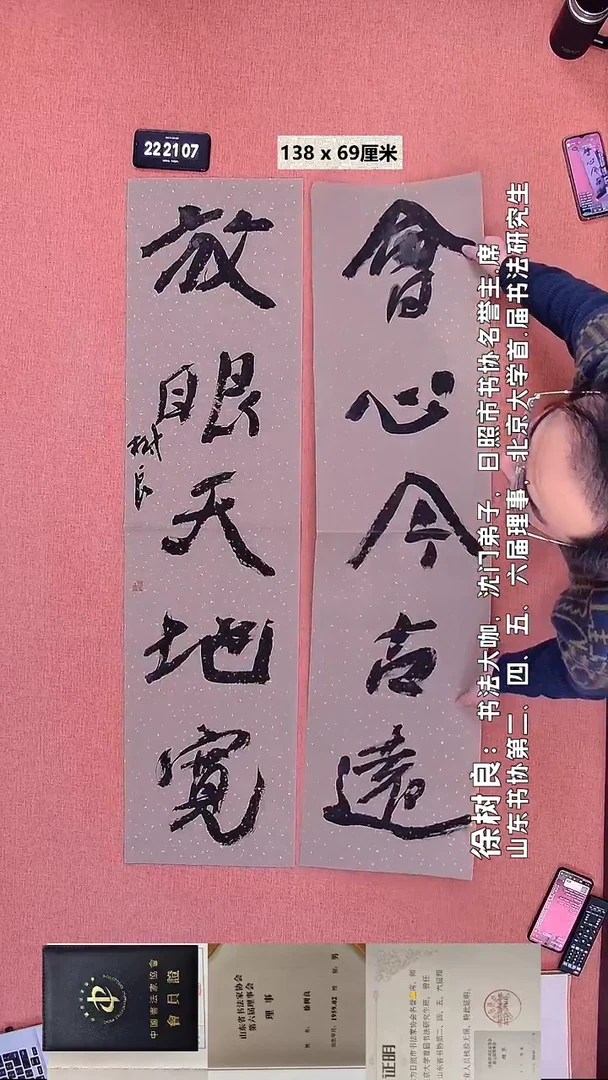 22 21 07
138 x 69厘米
會心今古遠
放眼天地寬
树良
徐树良：书法大咖、沈门弟子、日照市书协名誉主.席
山东书协第二、四、五、六届理事，北京大学首.届书法研究生
中国书法家协会
會員證
山东省书法家协会
第六届理事会
理事
姓名：徐树良
性别：男
出生年月：1959.02
证明